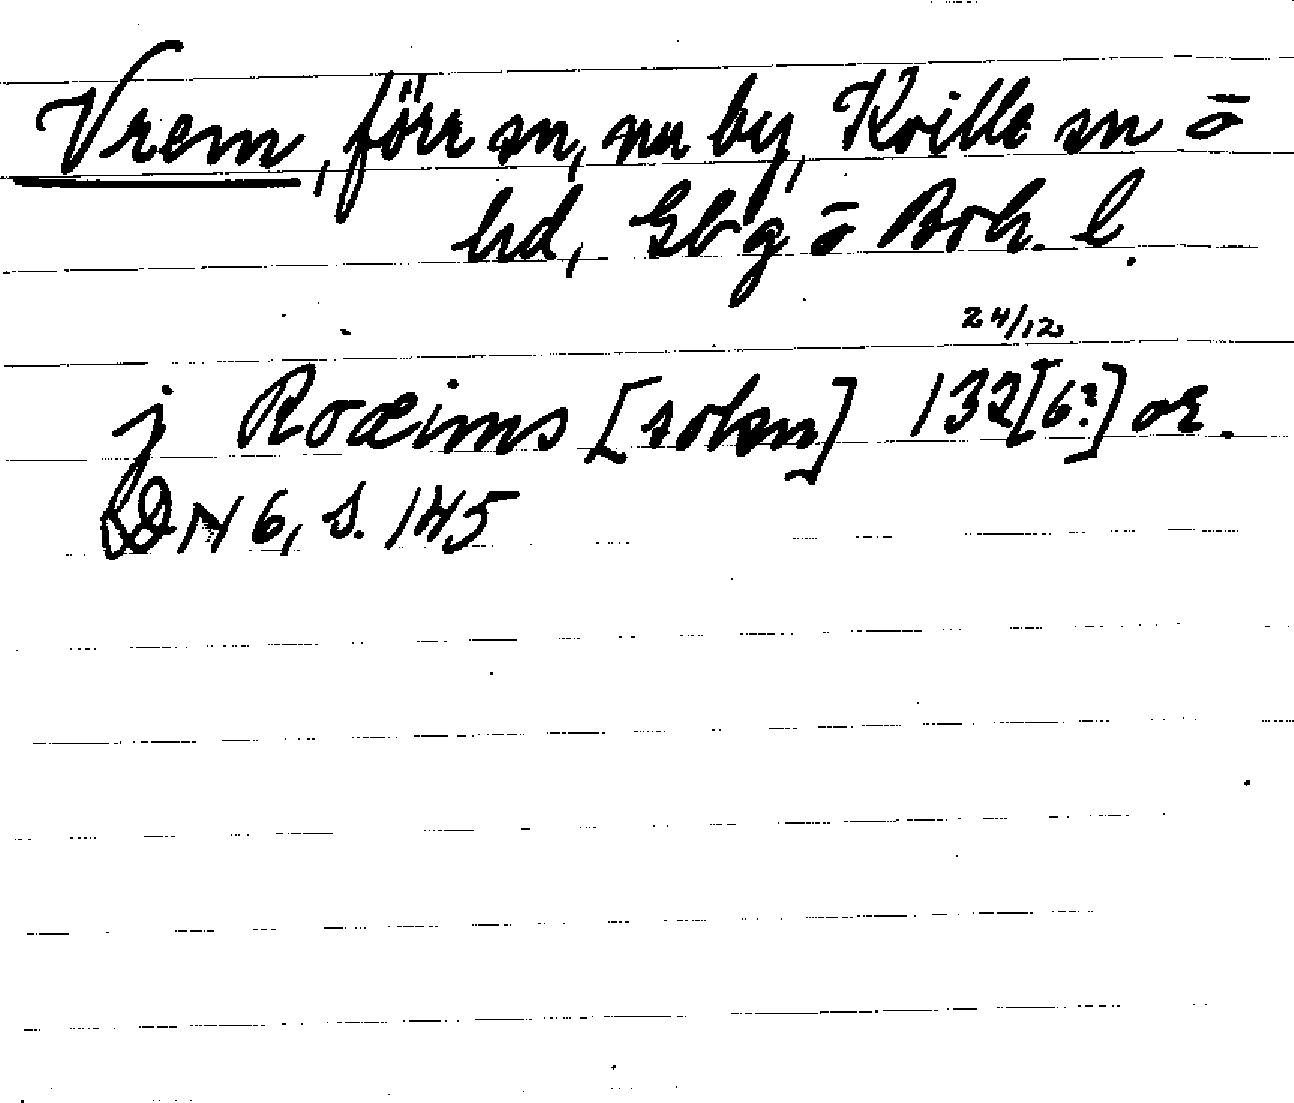 Vrem, förr sn, nu by, Kville sn o
hd, Gbg o Boh. l.
24/12
j Roæims [sokn] 132[6?] or.
DN 6, s. 145